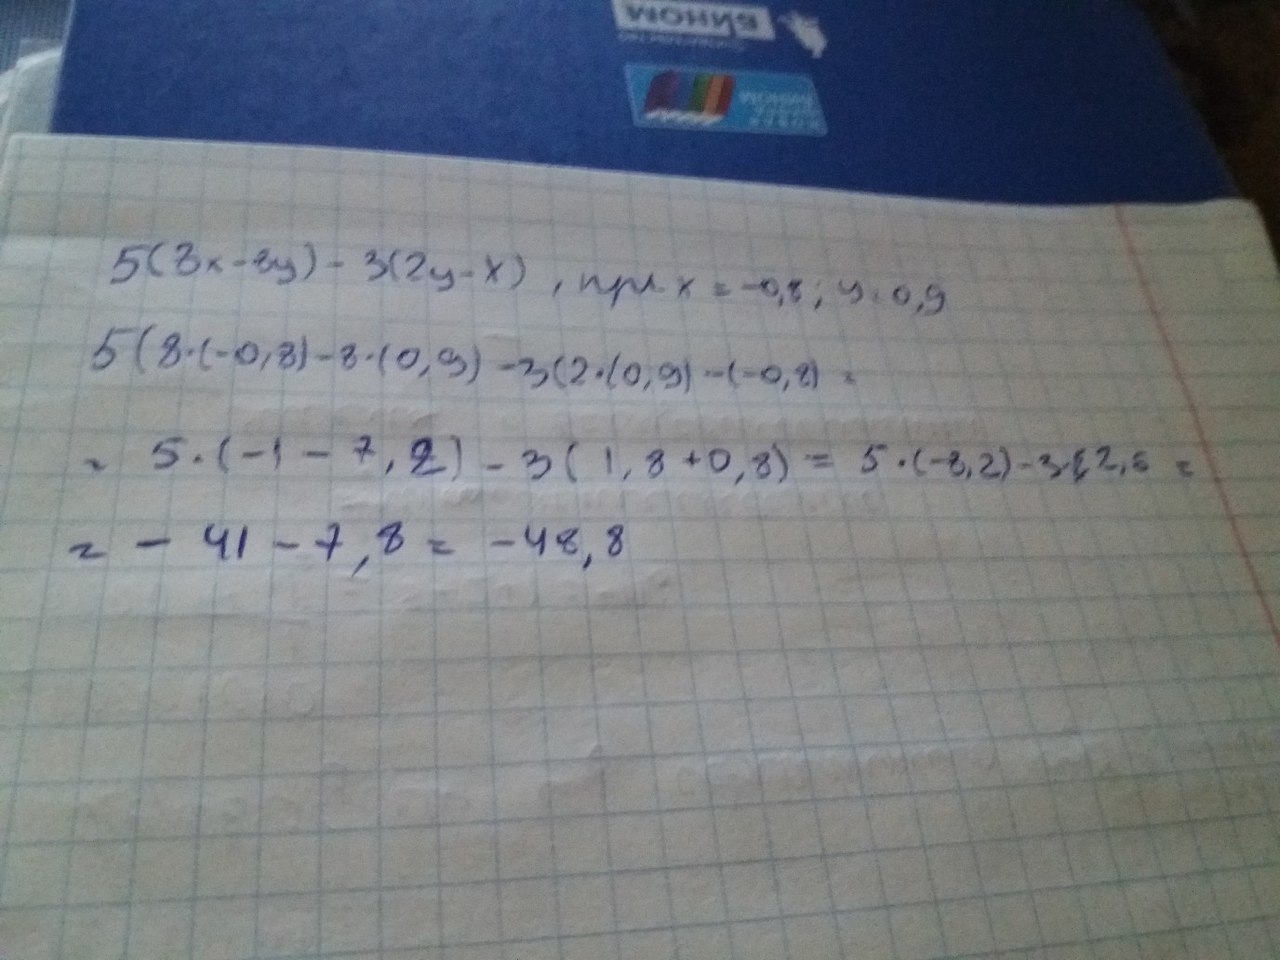 БИНОМ
5(8x-8y)-3(2y-x), при x=-0,8; y=0,9
5(8·(-0,8)-8·(0,9)-3(2·(0,9)-(-0,8)=
= 5·(-1-7,2)-3(1,8+0,8)=5·(-8,2)-3·(2,6=
= -41-7,8=-48,8